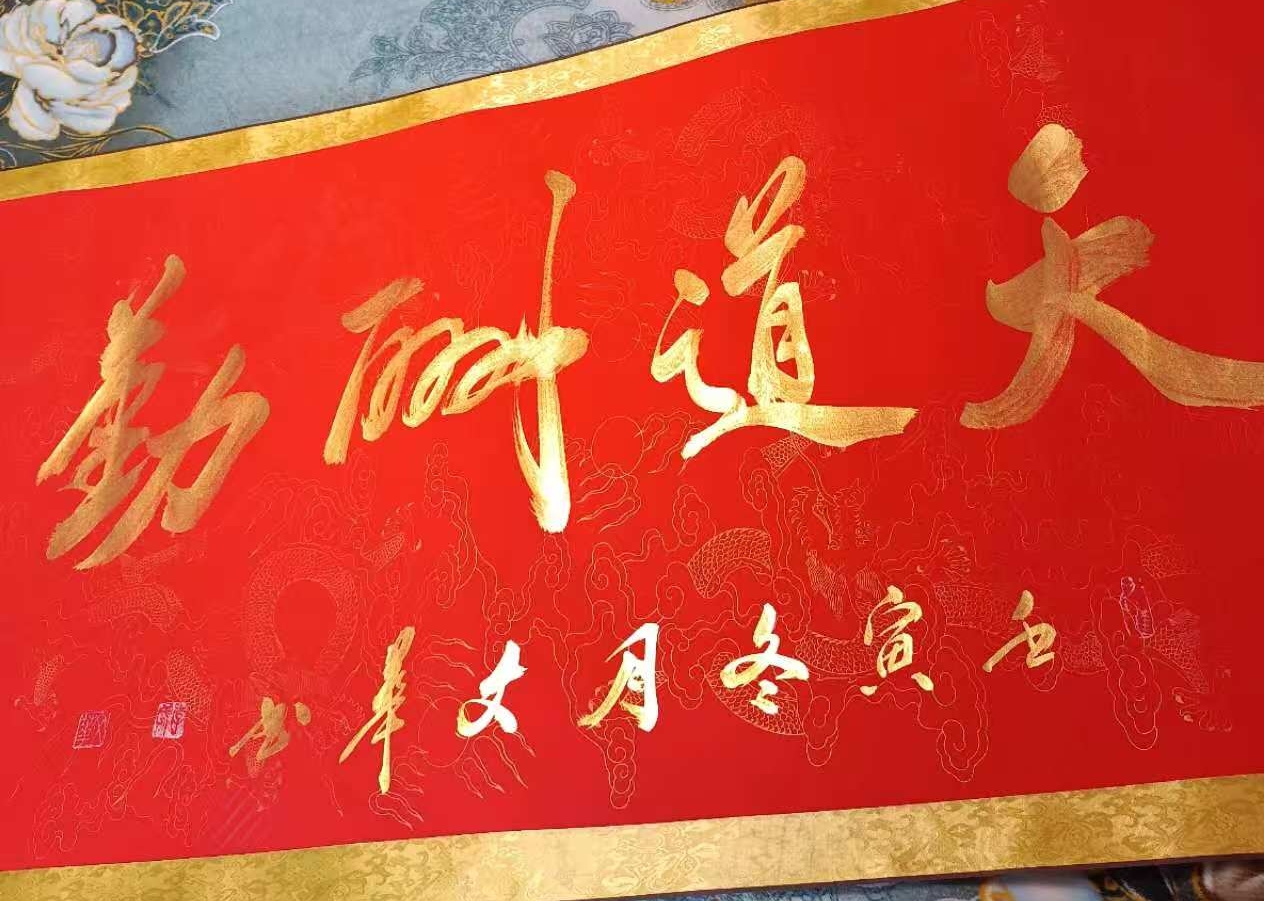 天道酬勤
壬寅冬月文华书